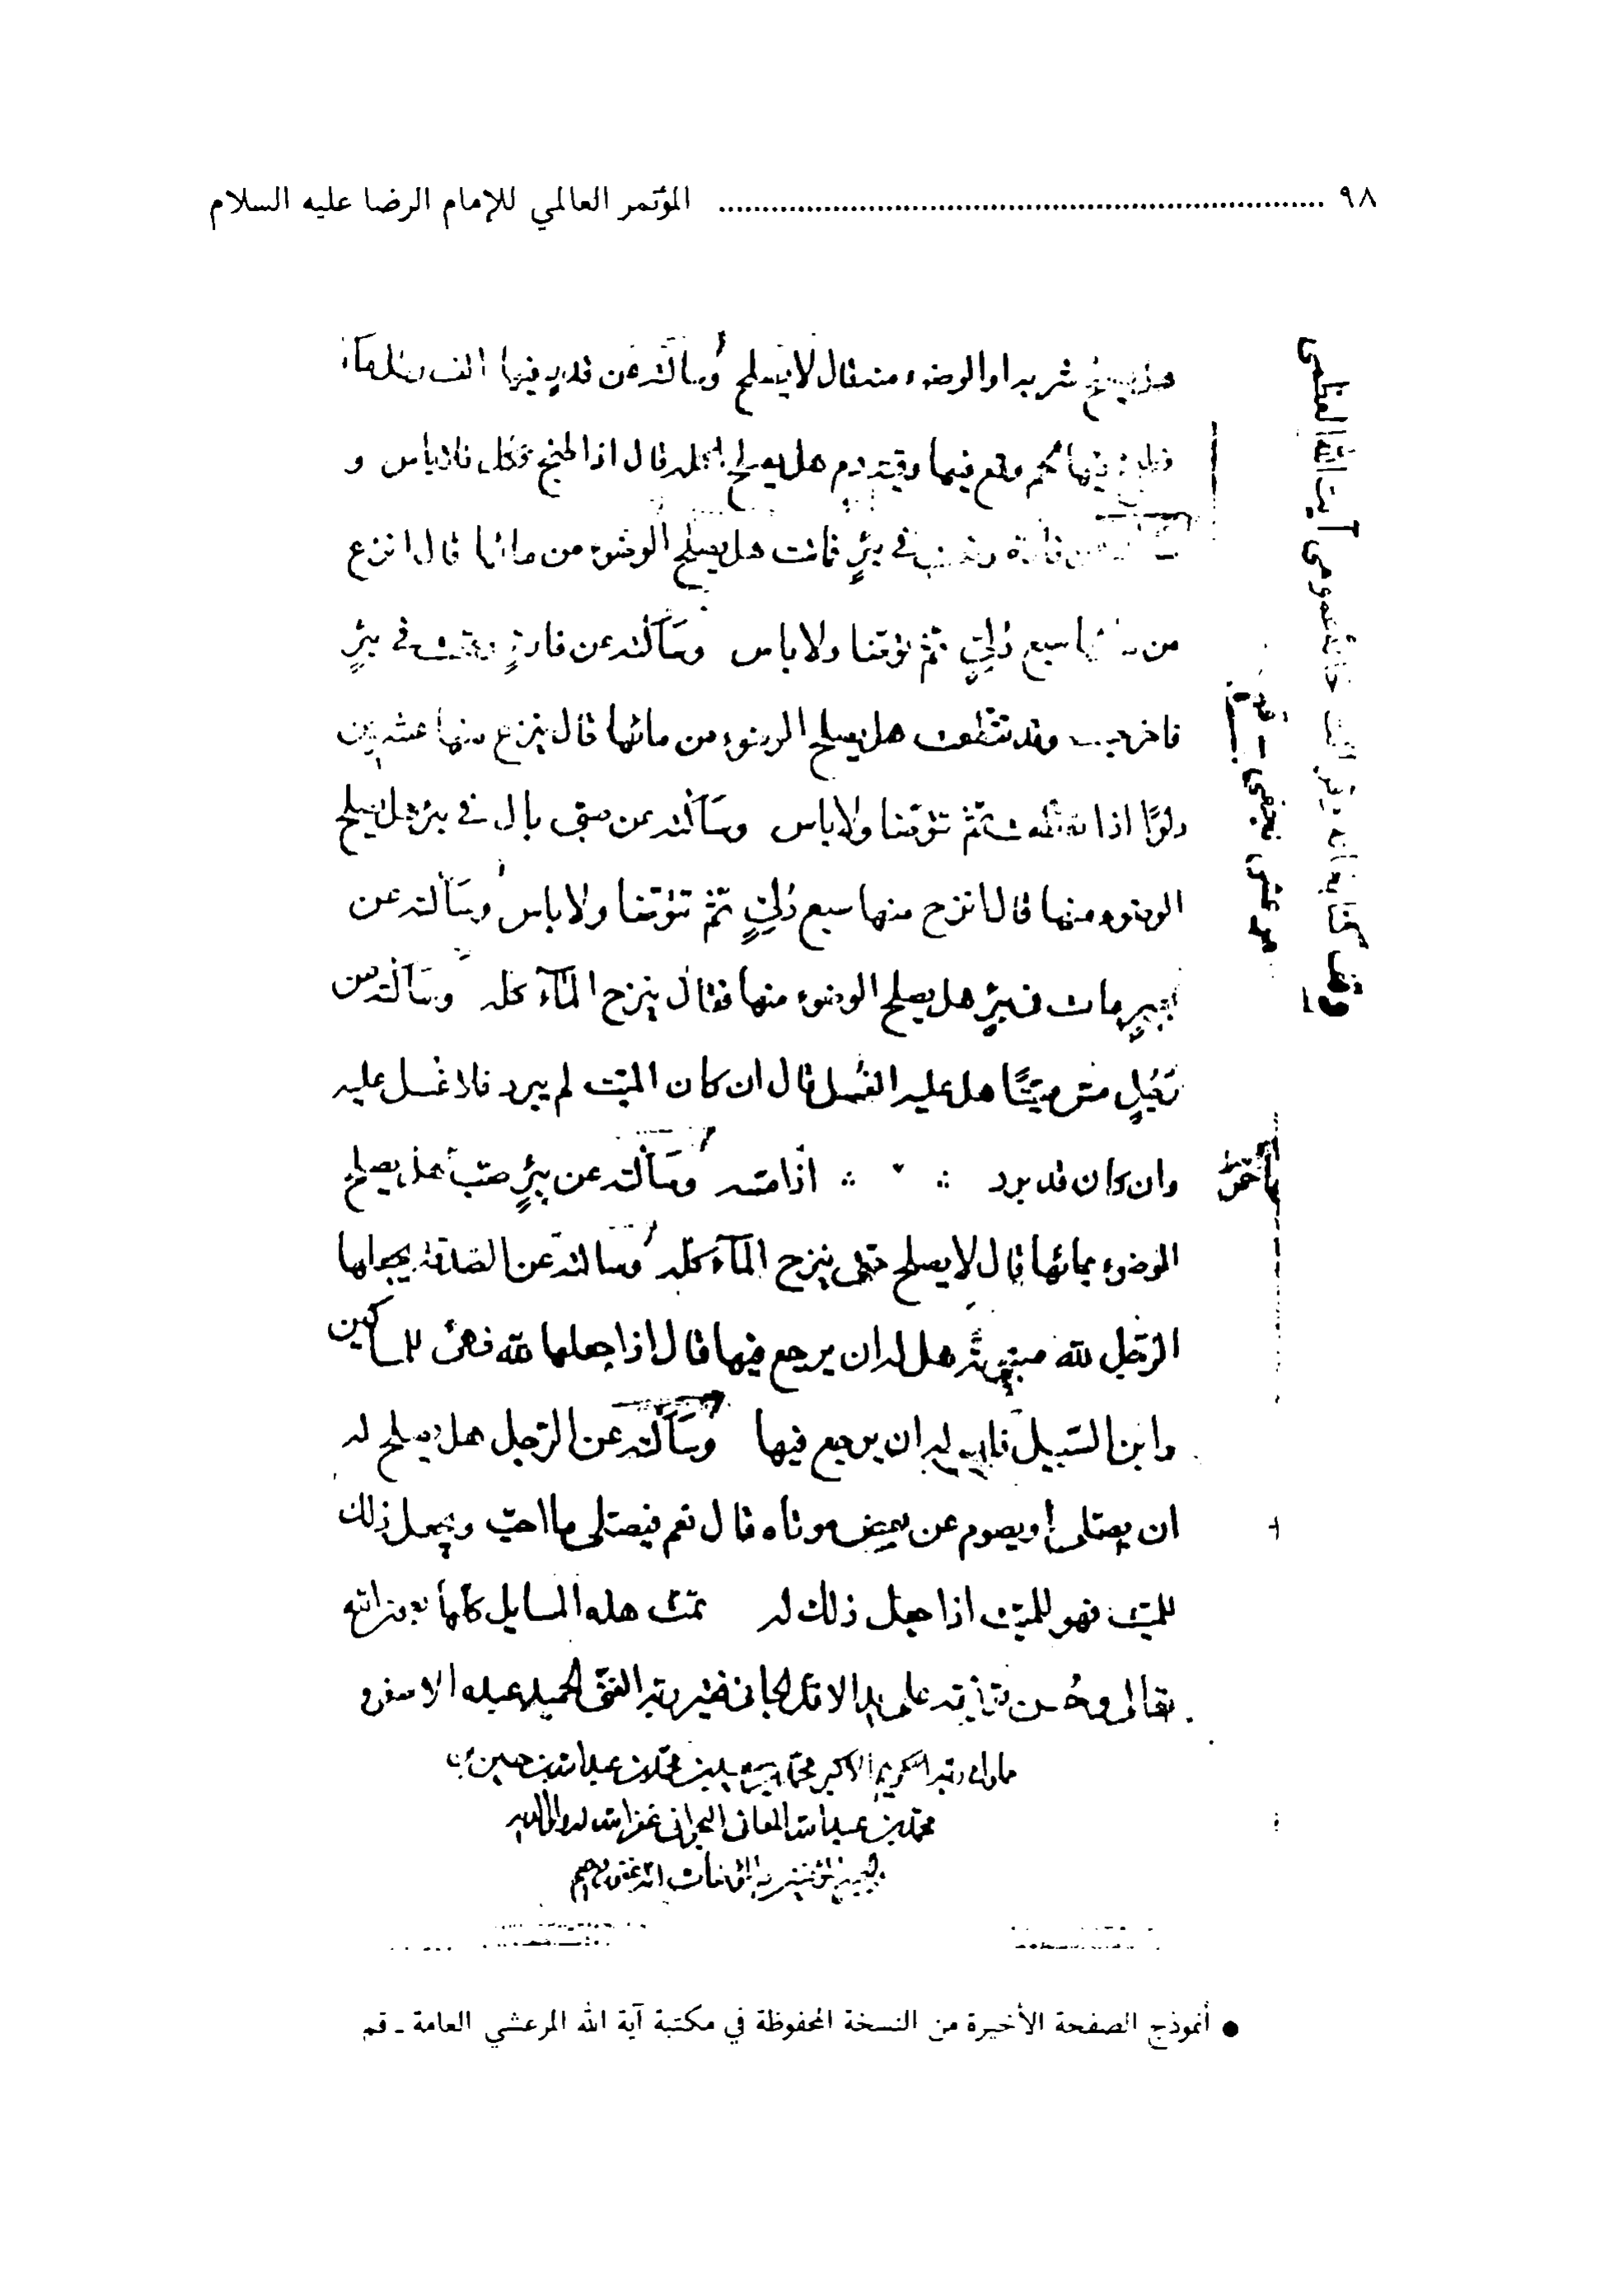 ٩٨ ........................................................................ المؤتمر العالمي للإمام الرضا عليه السلام
شربه او الوضوء منه فقال لا يصلح وسألته عن قدر فيها الف رطل ماء
فيها لحم وقع فيها وقية دم هل يصلح اكله قال اذا طبخ فكل فلا باس و
في بئر فماتت هل يصلح الوضوء من مائها قال انزع
من سبع دلي ثم توضا ولا باس وسألته عن فارة وقعت في بئر
فاخرجت وقد تقطعت هل يصلح الوضوء من مائها قال ينزع منها عشرين
دلوًا اذا تقطعت ثم توضا ولا باس وسألته عن صبي بال في بئر هل يصلح
الوضوء منها قال انزح منها سبع دلي ثم توضا ولا باس وسألته عن
مات في بئر هل يصلح الوضوء منها فقال ينزح الماء كله وسألته عن
رجل مس ميتًا هل عليه الغسل قال ان كان الميت لم يبرد فلا غسل عليه
وان كان قد برد اذا مسه وسألته عن بئر صب هل يصلح
الوضوء بمائها قال لا يصلح حتى ينزح الماء كله وسألته عن الصدقة يجعلها
الرجل لله هل له ان يرجع فيها قال اذا جعلها لله فهي للمساكين
وابن السبيل فليس له ان يرجع فيها وسألته عن الرجل هل يصلح له
ان يصلى او يصوم عن بعض موتاه قال نعم فيصلى ما احب ويجعل ذلك
للميت فهو للميت اذا جعل ذلك له تمت هذه المسايل كلها
تعالى وحسن على يد الاقل الجاني فقير ربه الغني الحميد
محمد بن عبد الله البحراني غفر الله له ولوالديه
وقف كتابخانه عمومى آيت الله العظمى
مرعشى نجفى - قم
● أنموذج الصفحة الأخيرة من النسخة المحفوظة في مكتبة آية الله المرعشي العامة ـ قم